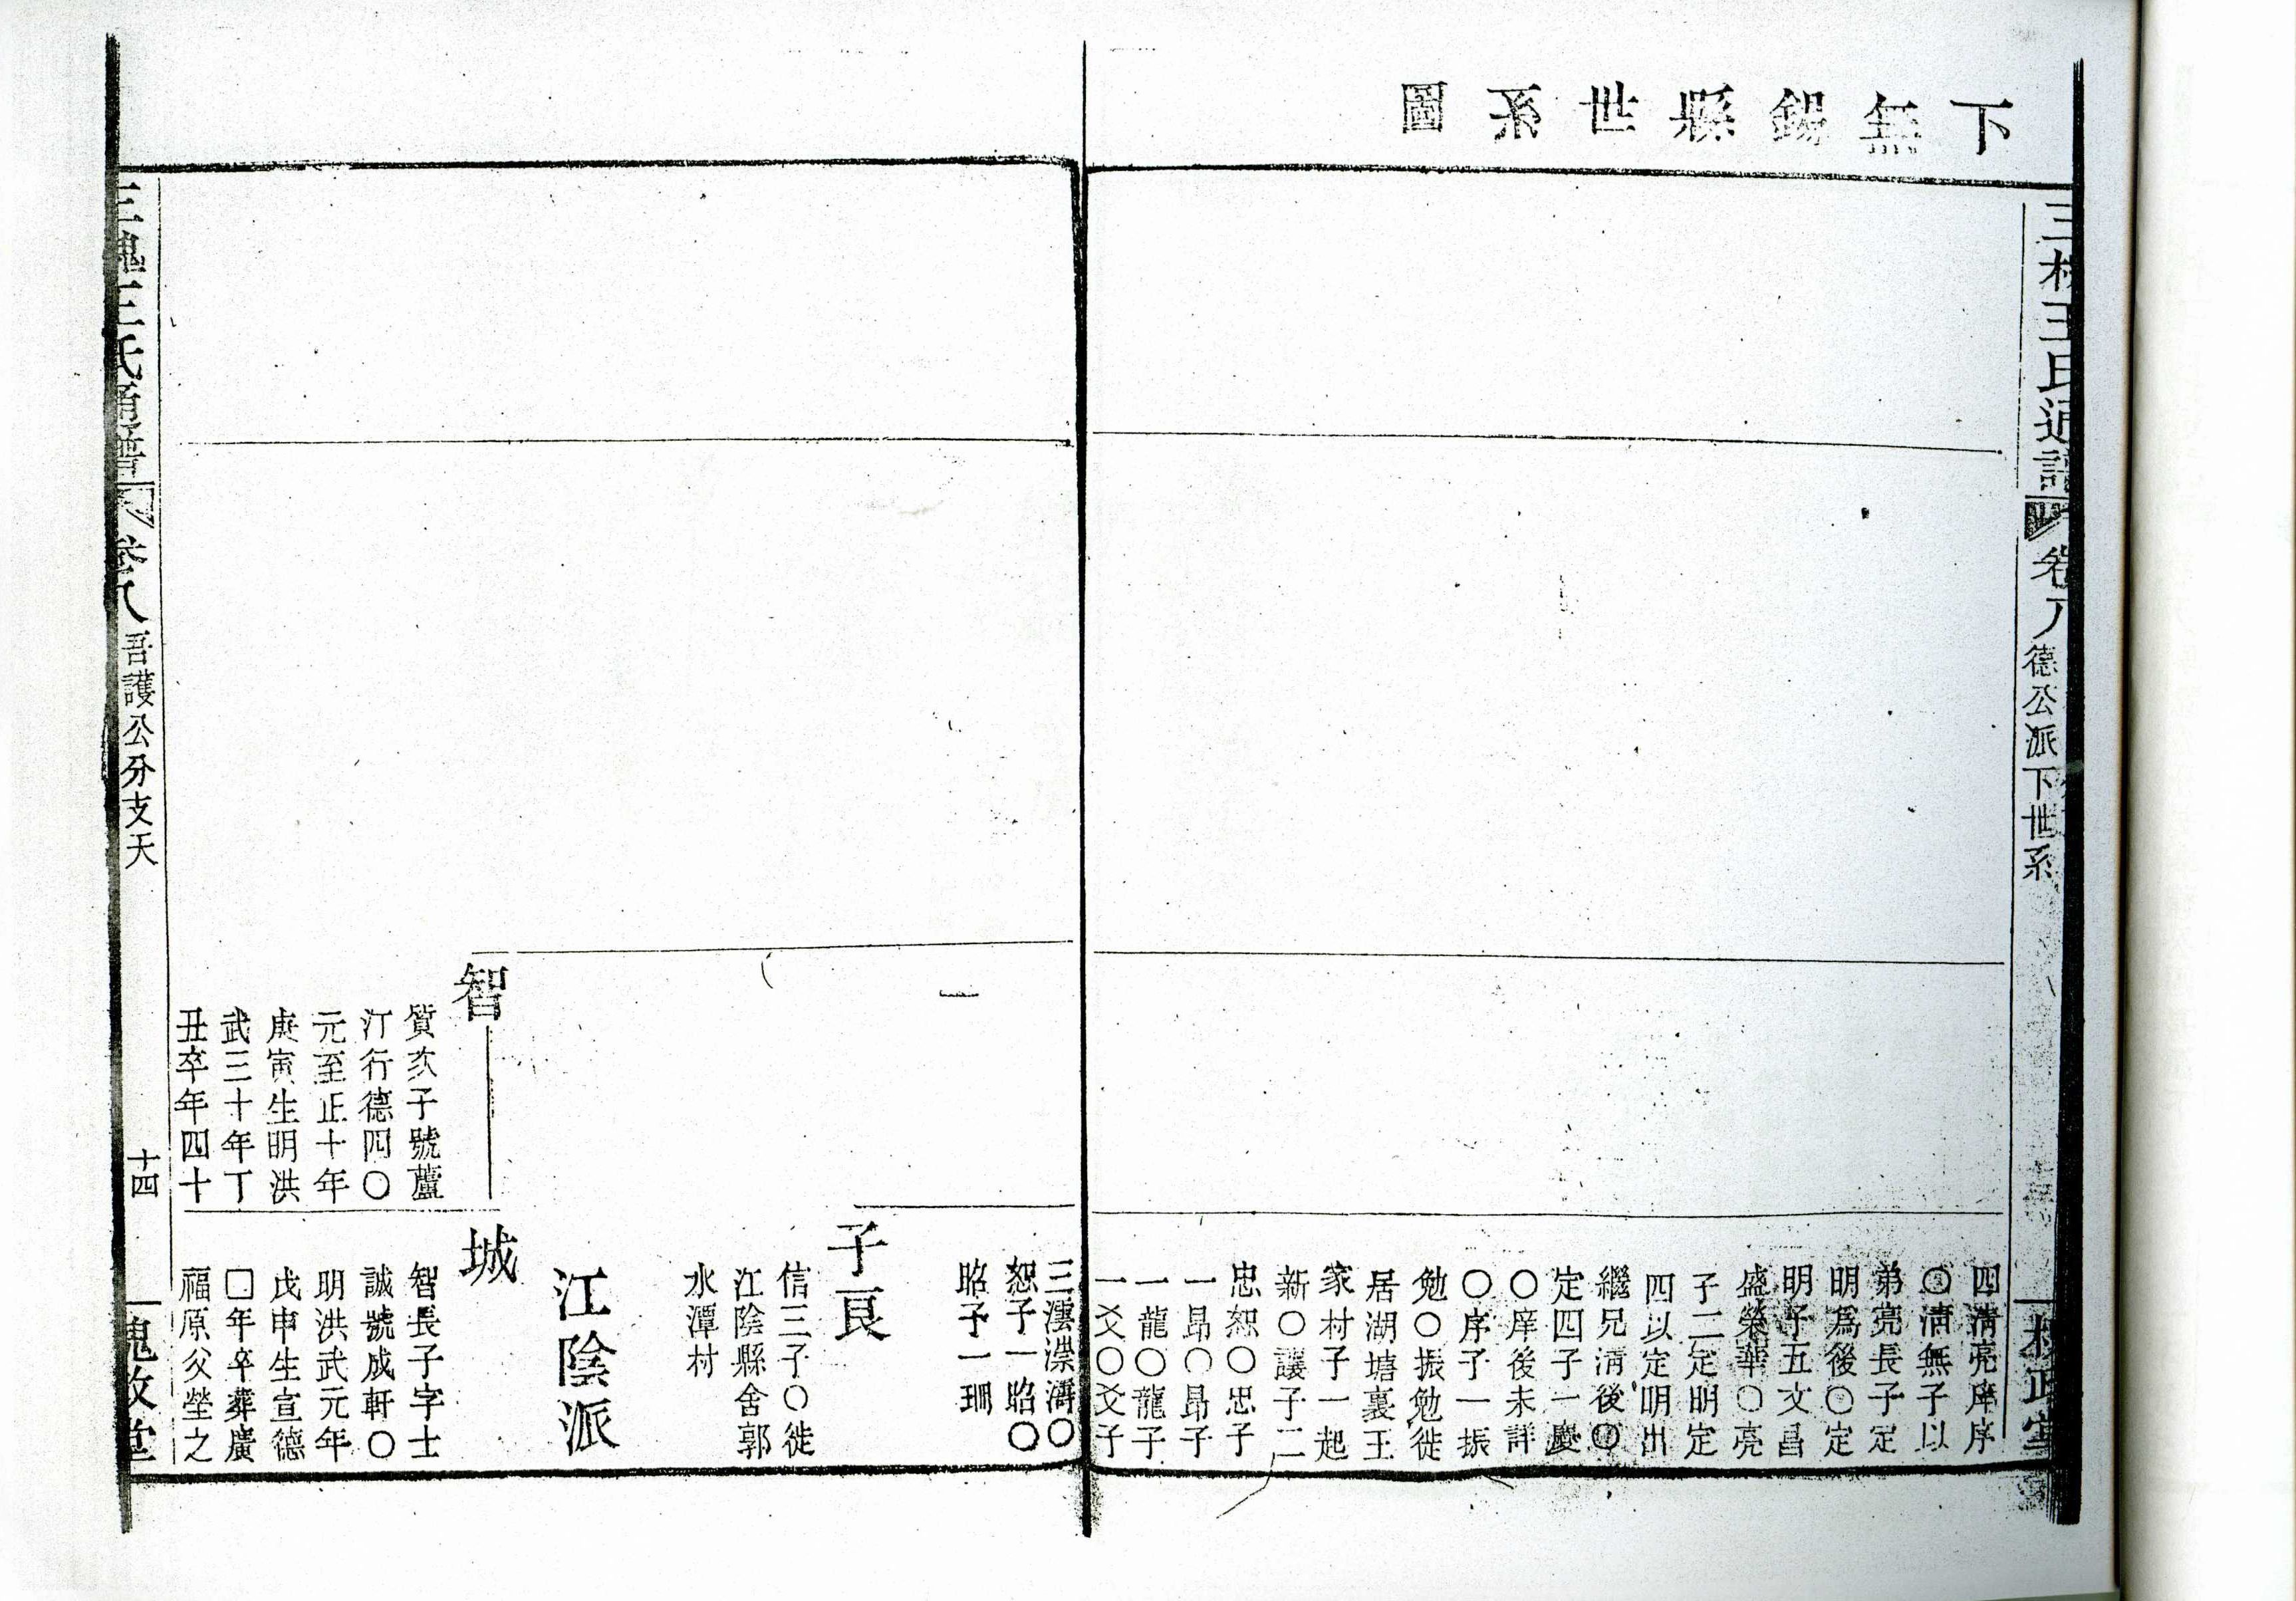 下無錫縣世系圖
三槐王氏通譜
卷八
德公派下世系
四清亮庠序
〇清無子以
弟亮長子定
明爲後〇定
明子五文昌
盛榮華〇亮
子二定明定
四以定明出
繼兄清後〇
定四子一慶
〇庠後未詳
〇序子一振
勉〇振勉徙
居湖塘裏王
家村子一起
新〇讓子二
忠恕〇忠子
一昂〇昂子
一龍〇龍子
一爻〇爻子
恕子一昭〇
昭子一珊
子良
信三子〇徙
江陰縣舍郭
水潭村
江陰派
智
質次子號蘆
汀行德四〇
元至正十年
庚寅生明洪
武三十年丁
丑卒年四十
城
智長子字士
誠號成軒〇
明洪武元年
戊申生宣德
□年卒葬廣
福原父塋之
三槐王氏通譜
卷八
吾護公分支天
十四